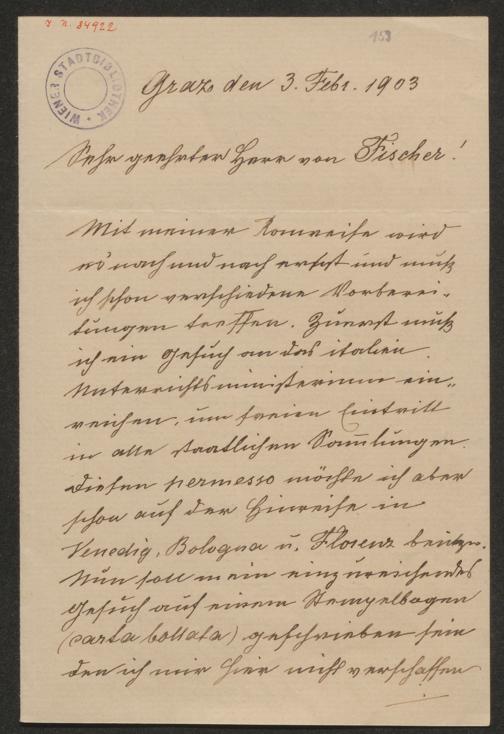 J. N. 84922
153
WIENER STADTBIBLIOTHEK
Graz den 3. Febr. 1903
Sehr geehrter Herr von Fischer!
Mit meiner Romreise wird
es nach und nach ernst und muß
ich schon verschiedene Vorberei-
tungen treffen. Zuerst muß
ich ein Gesuch an das italien.
Unterrichtsministerium ein-
reichen, um freien Eintritt
in alle staatlichen Sammlungen.
Diesen permesso möchte ich aber
schon auf der Hinreise in
Venedig, Bologna u. Florenz
Nun soll mein einzureichendes
Gesuch auf einem Stempelbogen
(carta bollata) geschrieben sein
den ich mir hier nicht verschaffen